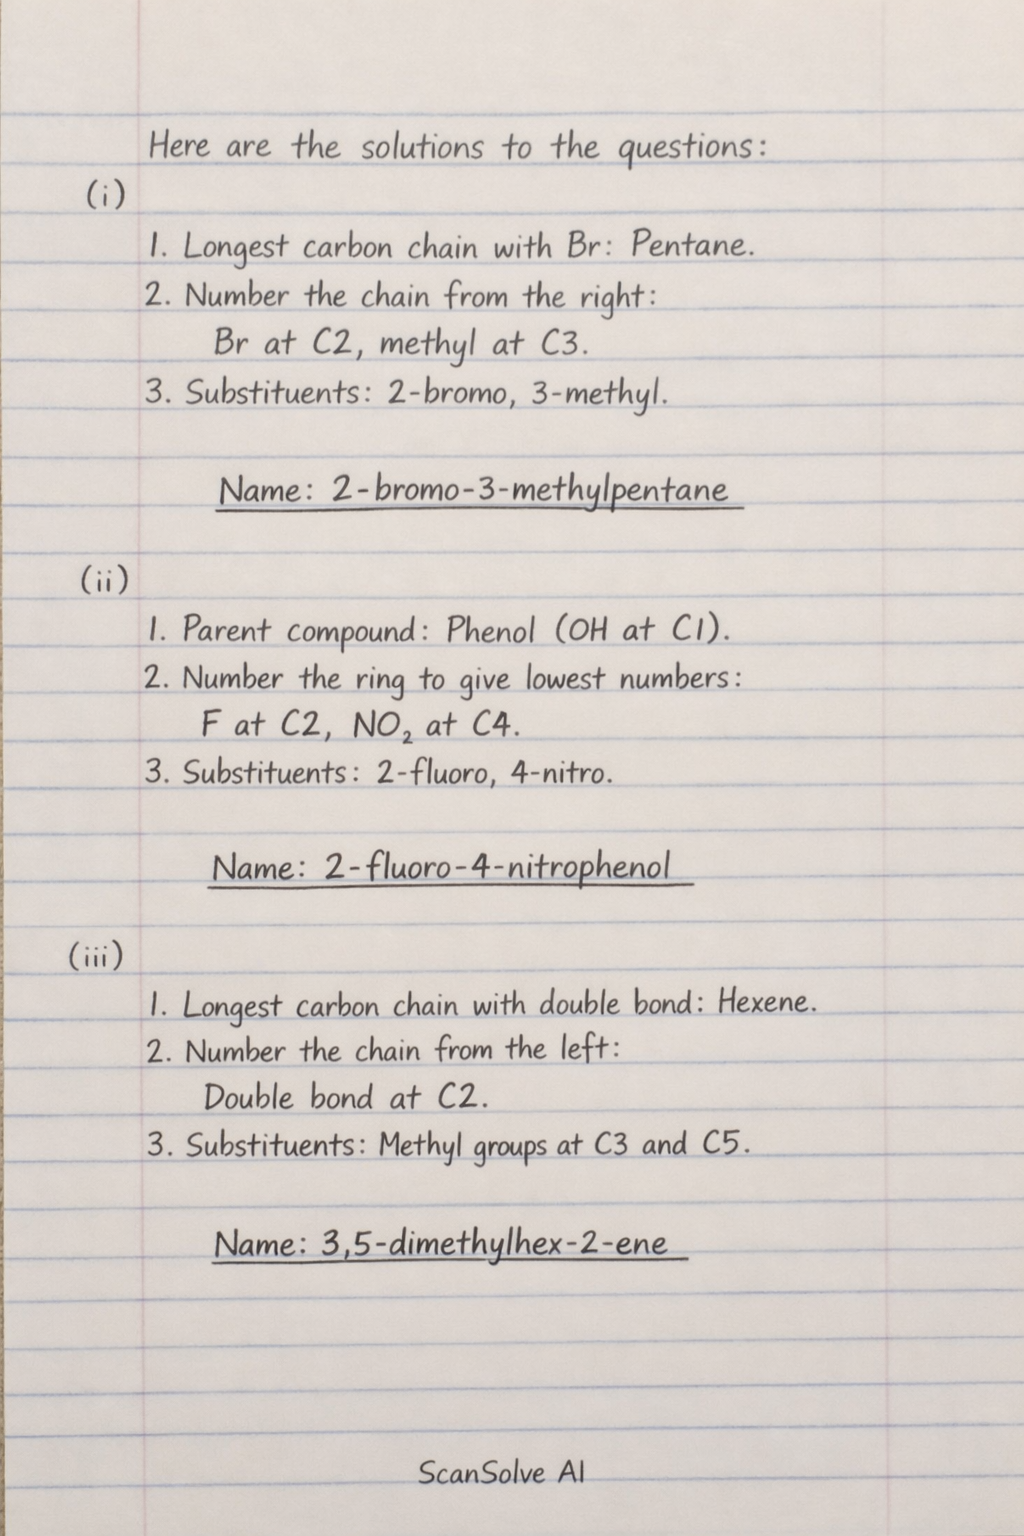 Here are the solutions to the questions:
(i)
1. Longest carbon chain with Br: Pentane.
2. Number the chain from the right:
Br at C2, methyl at C3.
3. Substituents: 2-bromo, 3-methyl.
Name: 2-bromo-3-methylpentane
(ii)
1. Parent compound: Phenol (OH at C1).
2. Number the ring to give lowest numbers:
F at C2, NO₂ at C4.
3. Substituents: 2-fluoro, 4-nitro.
Name: 2-fluoro-4-nitrophenol
(iii)
1. Longest carbon chain with double bond: Hexene.
2. Number the chain from the left:
Double bond at C2.
3. Substituents: Methyl groups at C3 and C5.
Name: 3,5-dimethylhex-2-ene
ScanSolve AI